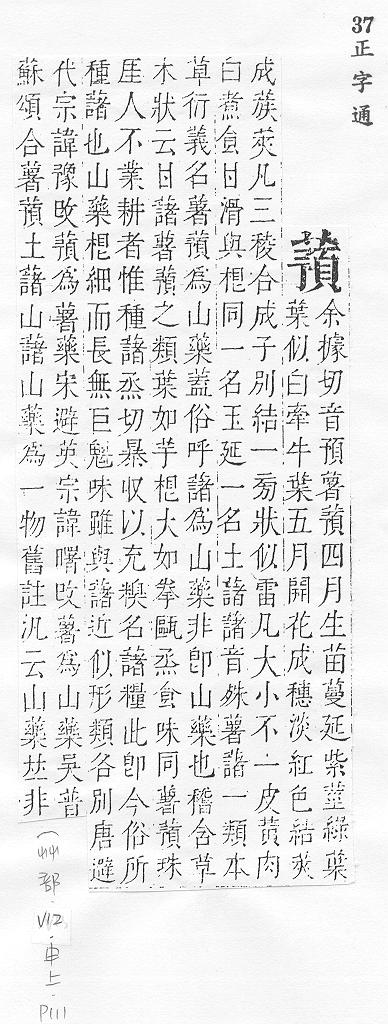 37 正字通
蕷
余據切音預薯蕷四月生苗蔓延紫莖綠葉
葉似白牽牛葉五月開花成穗淡紅色結莢
成蔟莢凡三稜合成子別結一㫄狀似雷凡大小不一皮黃肉
白煮食甘滑與根同一名玉延一名土藷藷音殊薯藷一類本
草衍義名薯蕷爲山藥蓋俗呼藷爲山藥非卽山藥也嵇含草
木狀云甘藷薯蕷之類葉如芋根大如拳甌烝食味同薯蕷珠
厓人不業耕者惟種藷烝切暴収以充糗名藷糧此卽今俗所
種藷也山藥根細而長無巨魁味雖與藷近似形類各別唐避
代宗諱豫改蕷爲薯藥宋避英宗諱曙改薯爲山藥吳普
蘇頌合薯蕷土藷山藷山藥爲一物舊註汎云山藥𠀤非
(艸部.V12.申上.P111